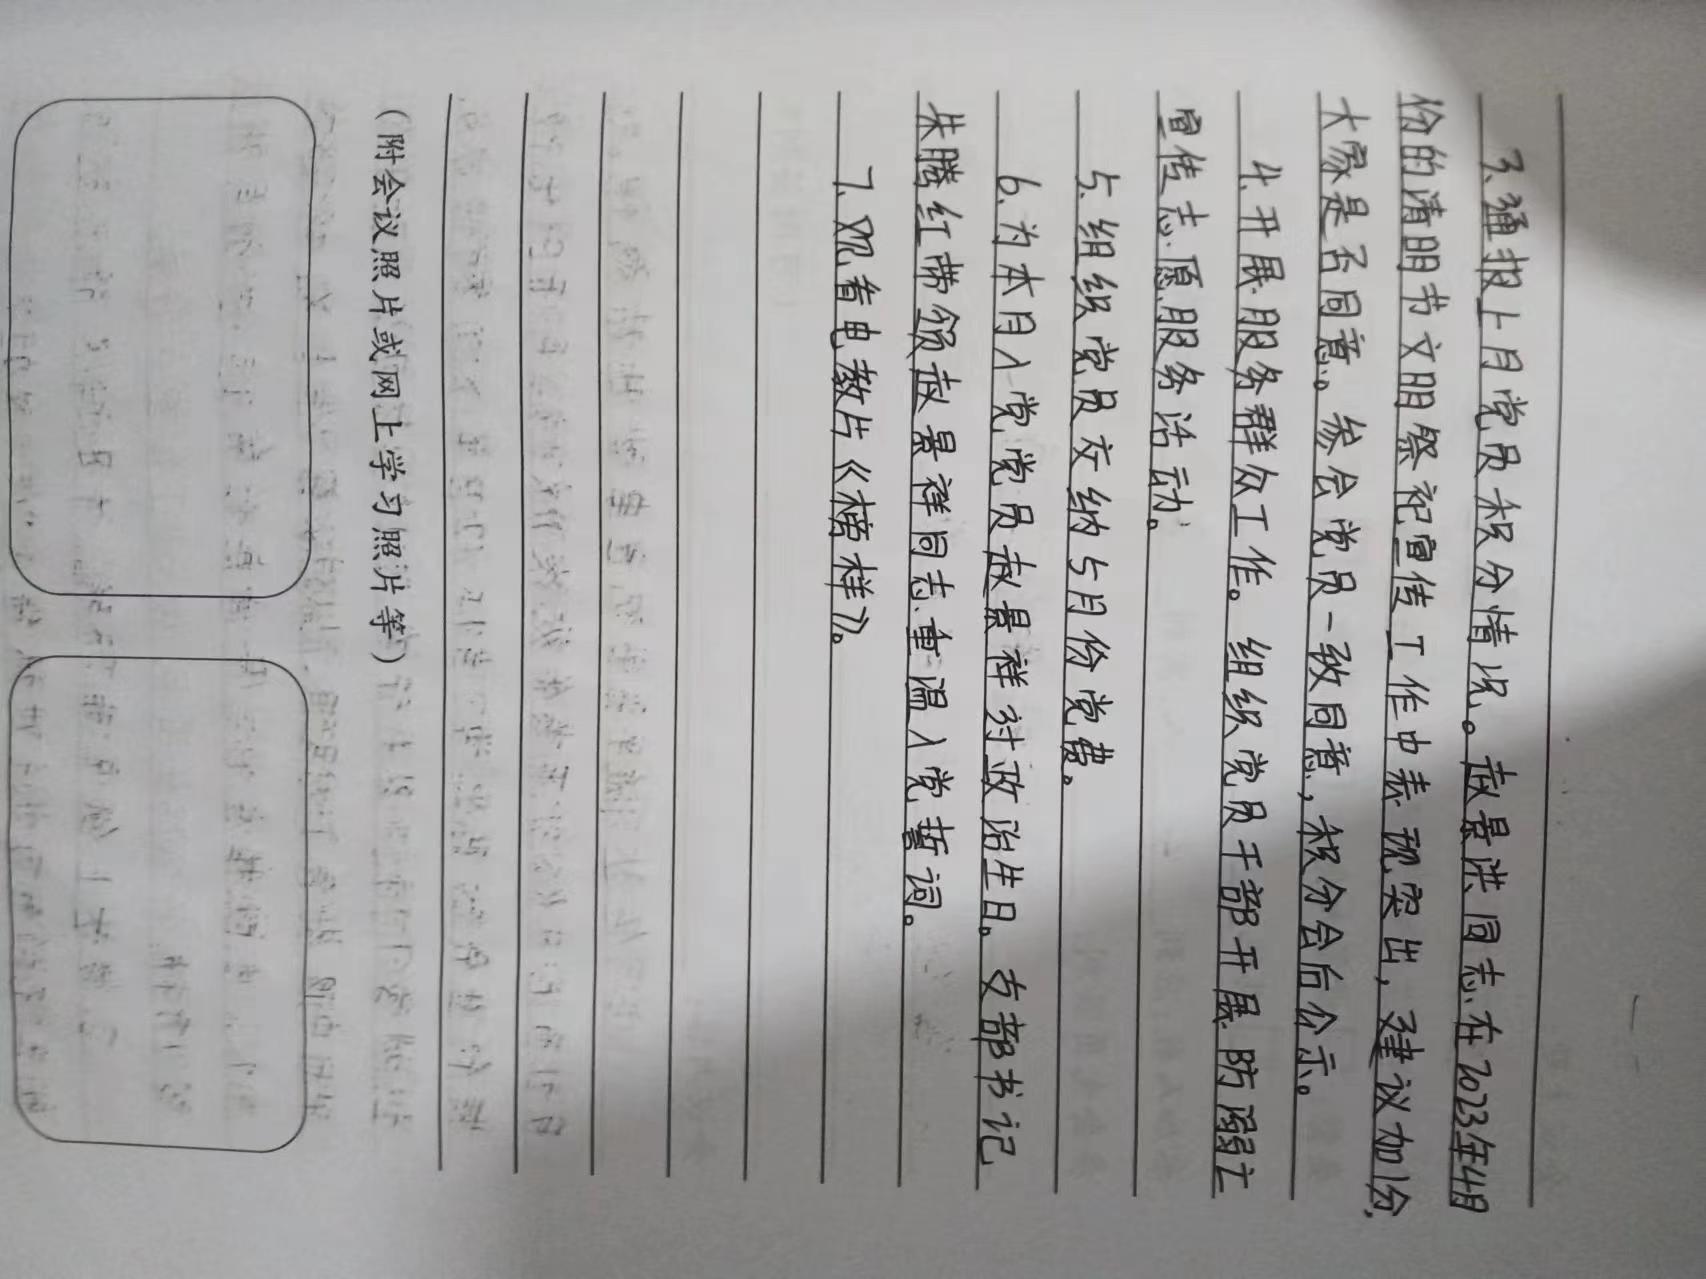 3.通报上月党员积分情况。赦景洪同志在2023年4月
份的清明节文明祭祀宣传工作中表现突出,建议加1分,
大家是否同意。参会党员一致同意,积分会后公示。
4.开展服务群众工作。组织党员干部开展防溺亡
宣传志愿服务活动。
5.组织党员交纳5月份党费。
6.为本月入党党员赦景祥过政治生日。支部书记
朱腾红带领赦景祥同志重温入党誓词。
7.观看电教片《榜样》。
(附会议照片或网上学习照片等)